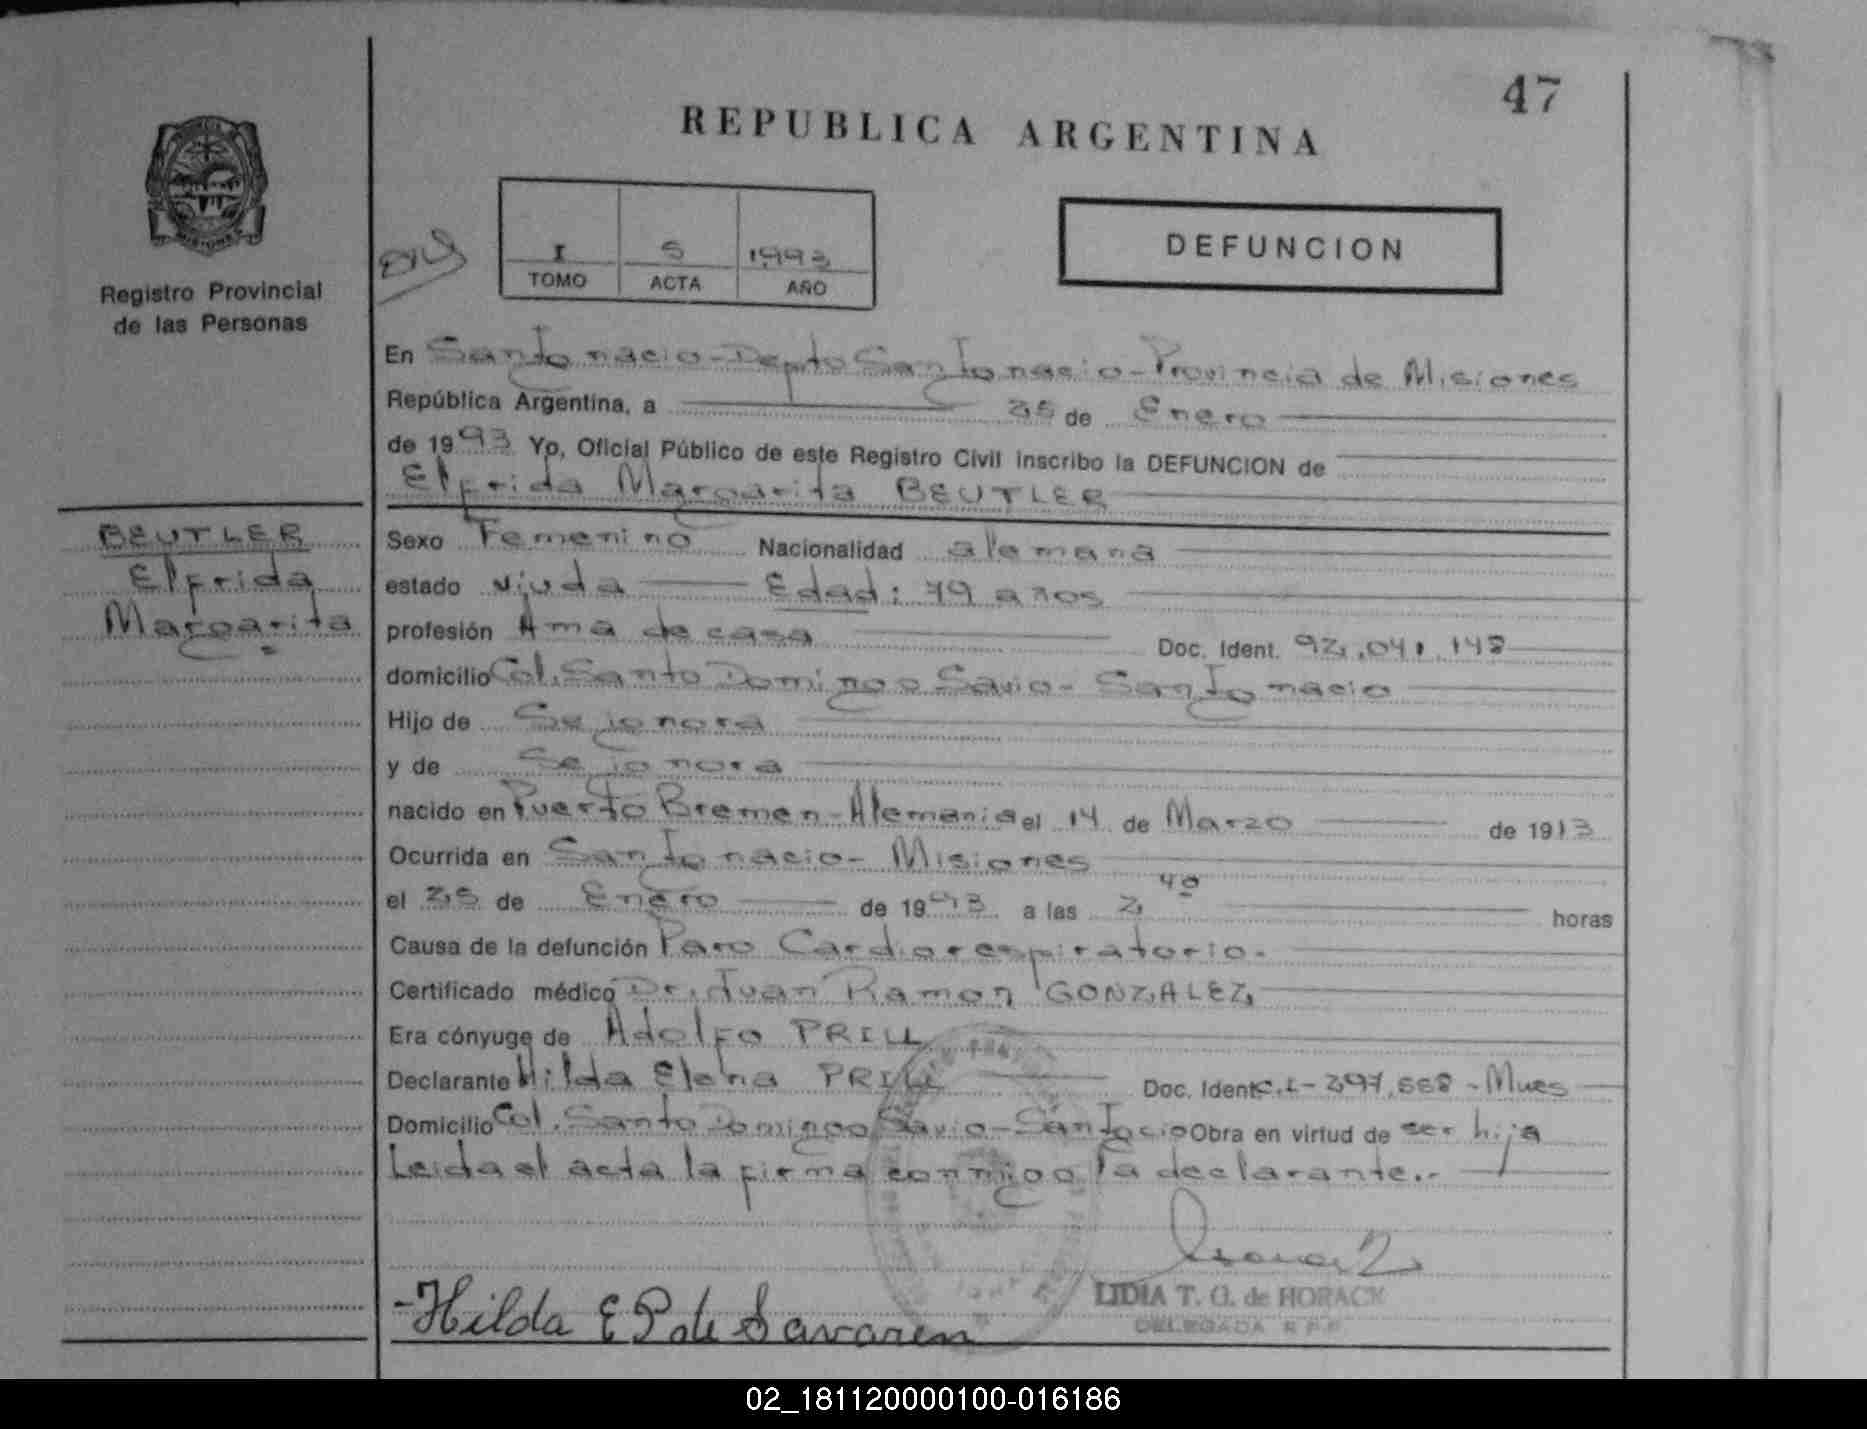 47
REPUBLICA ARGENTINA
I S 1993
TOMO ACTA AÑO
DEFUNCION
Registro Provincial
de las Personas
En San Ignacio - Depto San Ignacio - Provincia de Misiones
República Argentina, a 25 de Enero
de 1993 Yo, Oficial Público de este Registro Civil inscribo la DEFUNCION de
Elfrida Margarita BEUTLER
BEUTLER
Elfrida
Margarita
Sexo Femenino Nacionalidad alemana
estado viuda Edad: 79 años
profesión Ama de casa Doc. Ident. 92.041.148
domicilio Col. Santo Domingo Savio - San Ignacio
Hijo de Se ignora
y de Se ignora
nacido en Puerto Bremen - Alemania el 14 de Marzo de 1913
Ocurrida en San Ignacio - Misiones
el 25 de Enero de 1993 a las 2 40 horas
Causa de la defunción Paro Cardiorespiratorio.
Certificado médico Dr. Juan Ramon GONZALEZ
Era cónyuge de Adolfo PRILL
Declarante Hilda Elena PRILL Doc. Ident. C.I - 297.558 - Mnes
Domicilio Col. Santo Domingo Savio - San Igcio Obra en virtud de ser hija
Leida el acta la firma conmigo la declarante.-
-Hilda E P de Savaren
LIDIA T. G. de HORACK
DELEGADA R.P.P.
02_181120000100-016186